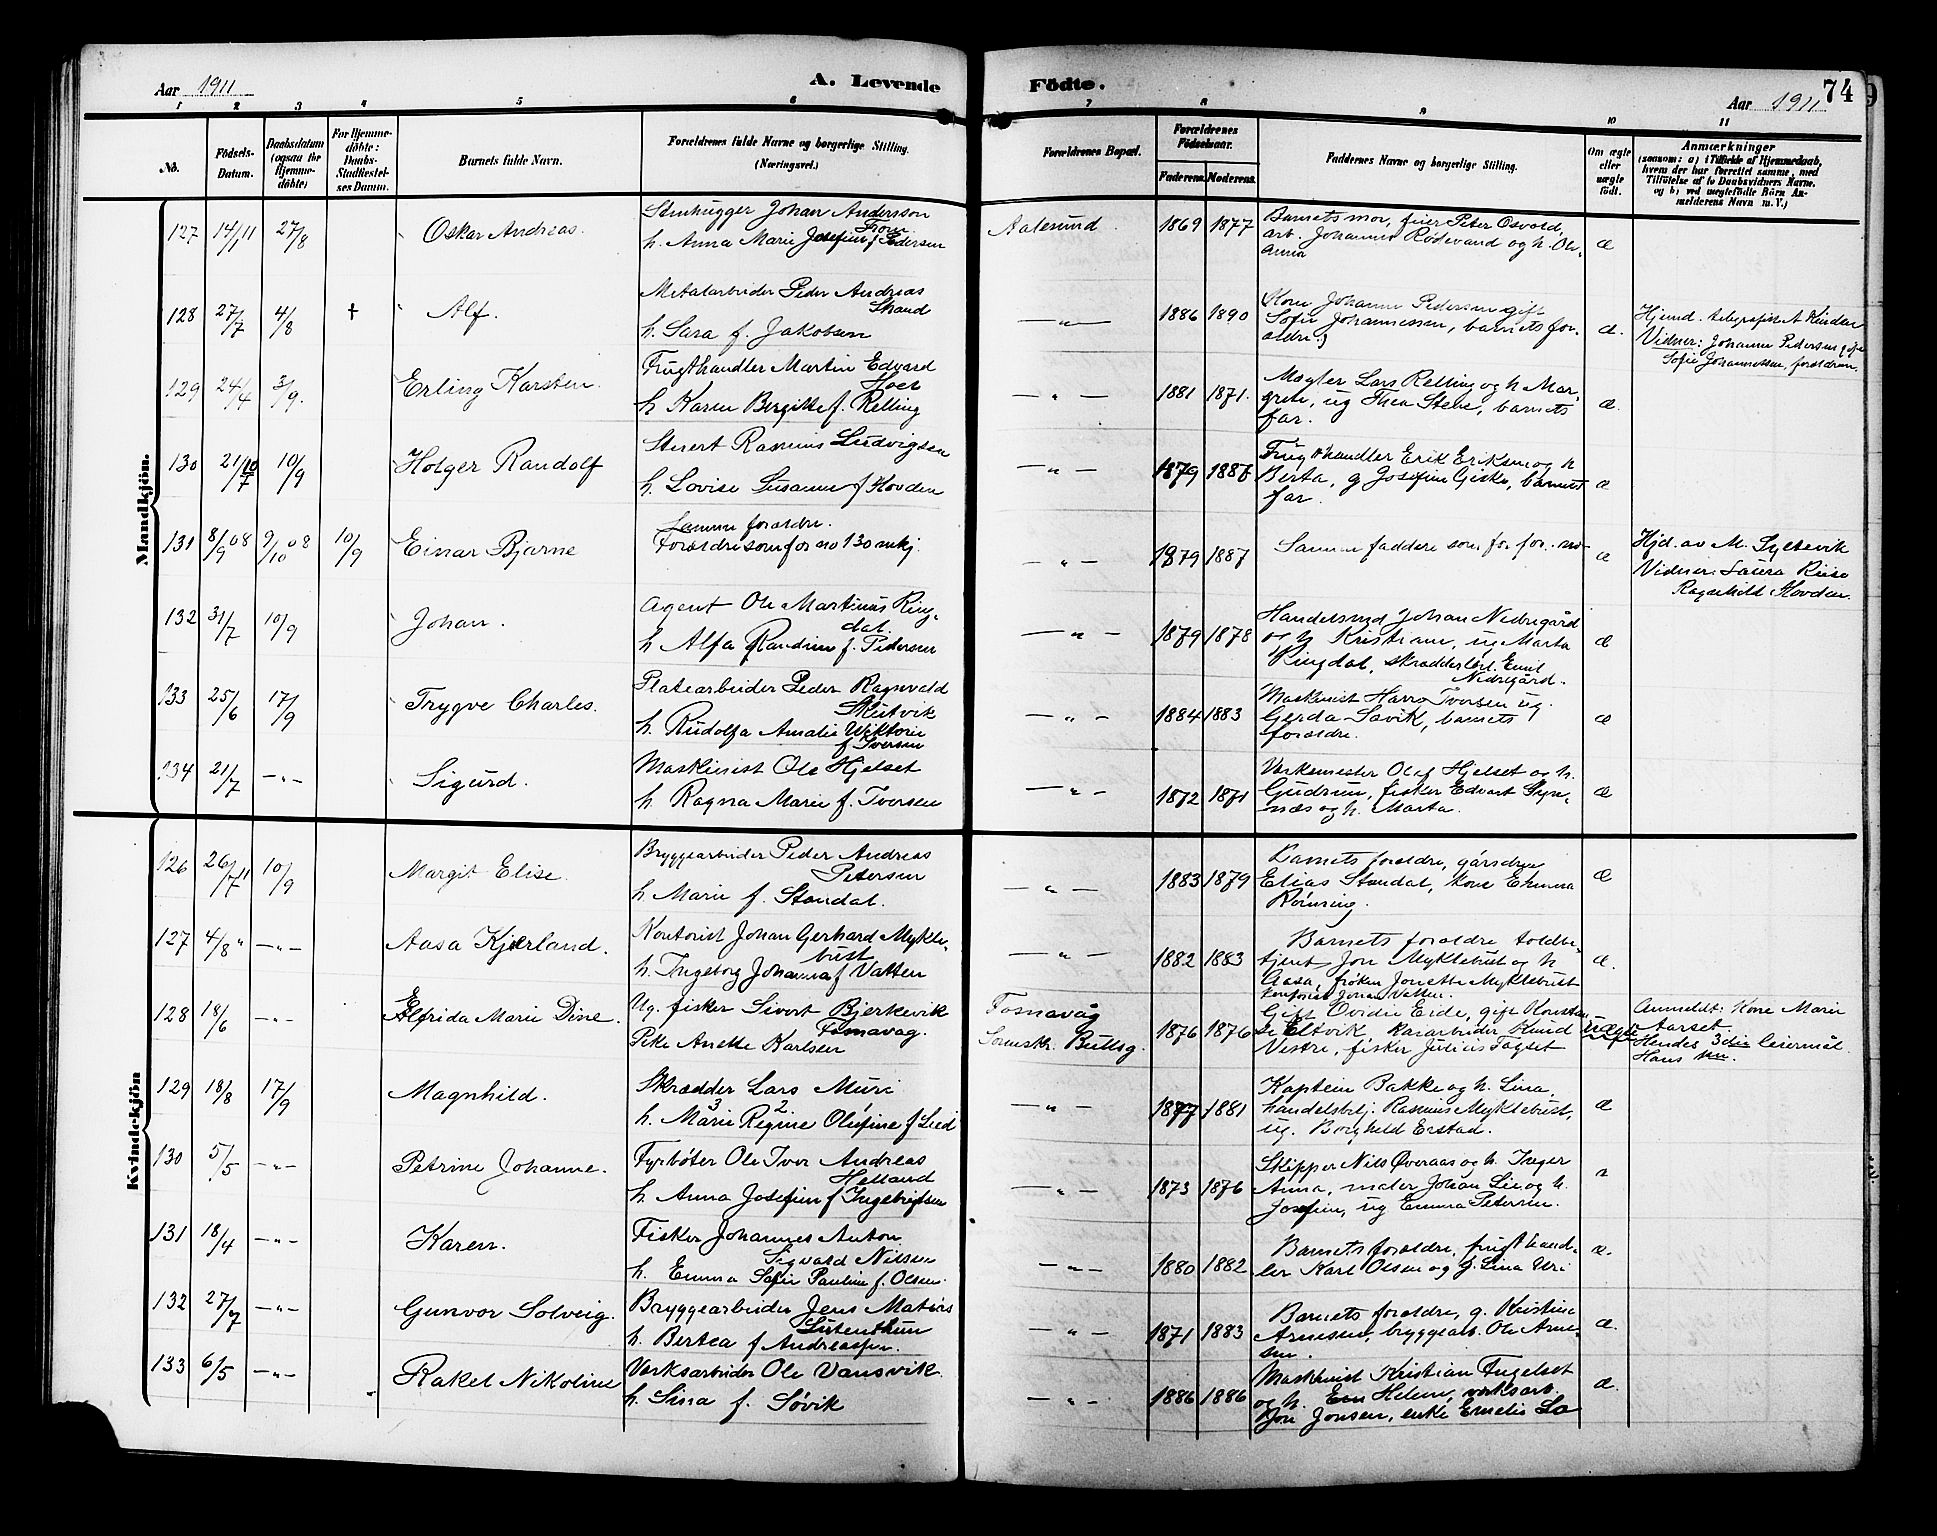 Aar 1911
A. Levende
Födte.
Aar 1911
74
1 2 3 4 5 6 7 8 9 10 11
No.
Födsels-
Datum.
Daabsdatum
(ogsaa for
Hjemme-
döbte)
For Hjemme-
döbte:
Daabs-
Stadfæstel-
ses Datum.
Barnets fulde Navn.
Forældrenes fulde Navne og borgerlige Stilling.
(Næringsvei.)
Forældrenes Bopæl.
Forældrenes
Födselsaar.
Faderens. Moderens.
Faddernes Navne og borgerlige Stilling.
Om ægte
eller
uægte
født.
Anmærkninger
(saasom: a) i Tilfælde af Hjemmedaab,
hvem der har forrettet samme, med
Tilföielse af to Daabsvidners Navne,
og b) ved uægtefödte Börn An-
melderens Navn m. V.)
Mandkjön.
127 14/1 11 27/8 Oskar Andreas.
Stenhugger Johan Andersson
From
h. Anna Marie Josefine f Pedersen
Aalesund 1869 1877
Barnets mor, feier Peter Osvold,
arb. Johannes Rødevand og h. Ole-
Anna
æ
128 27/7 4/8 + Alf.
Metalarbeider Peder Andreas
Strand
h. Sara f. Jakobsen
— " — 1886 1890
Kone Johanne Pedersen gift
Sofie Johannessen, barnets for-
ældre
æ.
Hjemd. telegrafist A Rindar
Vidner: Johanne Pedersen gift
Sofie Johannessen, forældrene.
129 24/4 3/9. Erling Karsten.
Frugthandler Martin Edvard
Hoel
h Karen Bergitte f. Relling
— " — 1881 1871.
Mægler Lars Relling og h Mar-
grete, ug Thea Stene, barnets
far.
æ.
130 21/7 10/9 Holger Randolf
Stuert Rasmus Ludvigsen
h. Lovise Susanne f Hovden
— " — 1879 1887
Frugthandler Erik Eriksen og h
Berta, g Josefine Giske, barnets
far.
æ
131 8/9 08 9/10 08 10/9 Einar Bjarne
Samme forældre.
Forældre som for no 130 mkj
— " — 1879 1887
Samme faddere som for for. no
æ
Hjd. av M. Syltevik
Vidner: Laura Riise
Ragnhild Hovden.
132 31/7 10/9 Johan.
Agent Ole Martinus Ring-
dal.
h Alfa Randine f. Pedersen
— " — 1879 1878
Handelsmd Johan Nedregård
og h Kristiane, ug Marta
Ringdal, skrædderlærl. Emil
Nedregård.
æ
133 25/6 17/9 Trygve Charles.
Platearbeider Peder Ragnvald
Slutvik
h. Rudolfa Amalie Viktorie
f Iversen
— " — 1884 1883
Maskinist Harro Iversen ug
Gerda Savik, barnets
forældre.
æ
134 21/7 — " — Sigurd.
Maskinist Ole Hjelset
h Ragna Marie f. Iversen
— " — 1872 1871
Verkmester Olaf Hjelset og h.
Gudrun, fisker Edvart Syn-
næs og h. Marta.
æ
Kvindekjön
126 26/7 11 10/9 Margit Elise.
Bryggearbeider Peder Andreas
Petersen
h Marie f. Standal.
— " — 1883 1879
Barnets forældre, gårsdreng
Elias Standal, kone Emma
Rønning.
æ
127 4/8 " — " — Aasa Kjærland.
Kontorist Johan Gerhard Mykle-
bust
h. Ingeborg Johanna f Vatten
— " — 1882 1883
Barnets forældre toldbe-
tjent Jon Myklebust og h
Aasa, frøken Jonette Myklebust
kontorist Johan Vatten.
æ.
128 18/6 — " — Elfrida Marie Dine.
Ug. fisker Sivert Bjerkevik
Fosnavåg.
Pike Anette Karlsen
Fosnavåg
1876 1876
Gift Ovidie Eide, gift Konstan-
se Eltvik kaiarbeider Knud
Vestre, fisker Julius Fagset
uægte
Anmeldt: Kone Marie
Aarset.
Hendes 3die leiermål
Hans
129 18/8 17/9 Magnhild.
Skrædder Lars Muri
3 2
h. Marie Regine Olufine f Lied
— " — 1877 1881
Kaptein Bakke og h. Lina,
handelsbetj. Rasmus Myklebust,
ug. Borghild Erstad.
æ
130 5/5 — " — Petrine Johanne.
Fyrbøter Ole Iver Andreas
Helland
h. Anna Josefine f Ingebrigtsen
— " — 1873 1876
Skipper Nils Øveraas og h. Inger
Anna, maler Johan Lie og h.
Josefine, ug Emma Petersen.
131 18/4 — " — Karen.
Fisker Johannes Anton
Sigvald Nilsen
h. Emma Sofie Pauline f. Olsen.
— " — 1880 1882
Barnets forældre, frugthand-
ler Karl Olsen og g. Lina Uri
æ.
132 27/7 — " — Gunvor Solveig.
Bryggearbeider Jens Matias
h. Bertea f Andreassen.
— " — 1871 1883
Barnets forældre, g. Kristine
Arnessen, bryggearb. Ole Arne-
sen.
æ.
133 6/5 — " — Rakel Nikoline
Verksarbeider Ole Vansvik.
h. Lina f. Søvik
— " — 1886 1886
Maskinist Kristian Fugelset
og h. Helene, verksarb.
Jon Jonsen, enke Emelie Lø
æ.